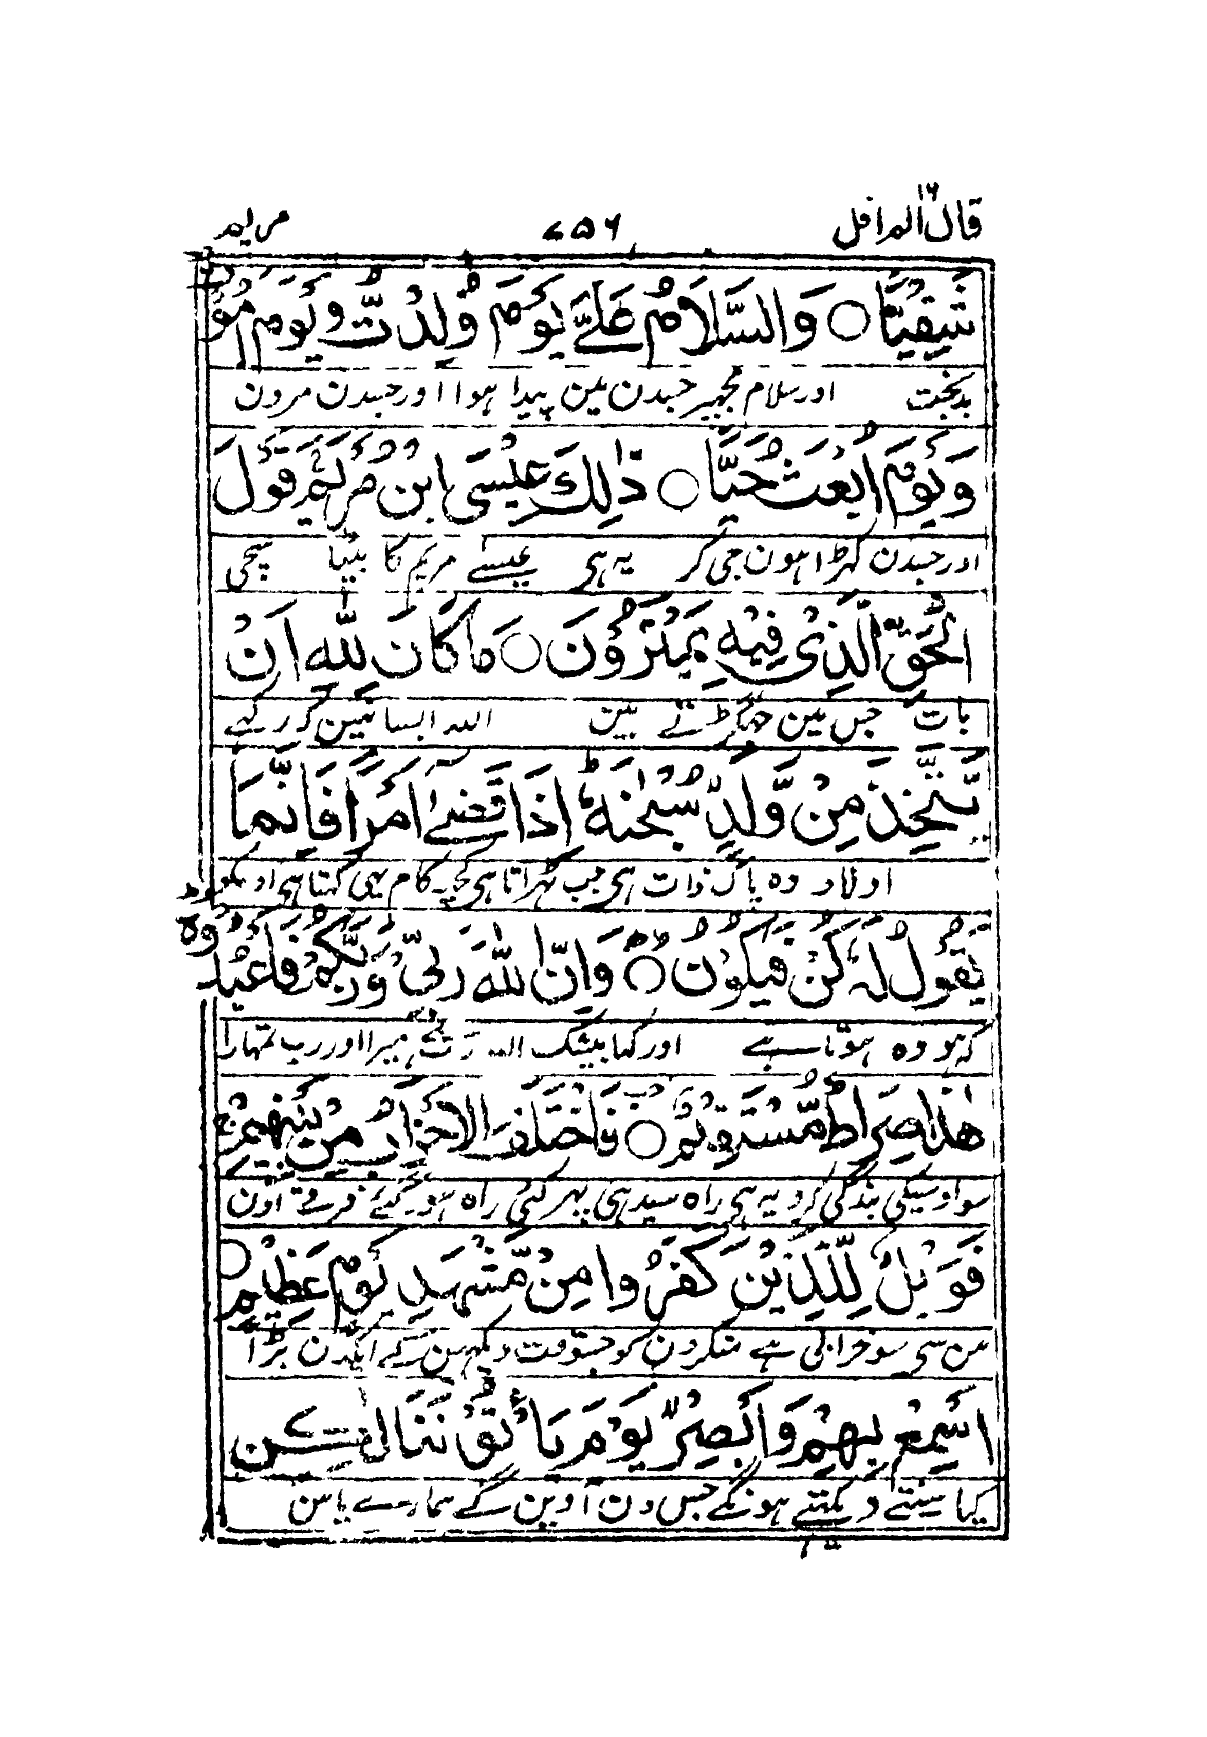 قال الم اقل ١٦ ٧٥٦ مريم
شَقِيًّا ○ وَالسَّلَامُ عَلَيَّ يَوْمَ وُلِدْتُّ وَيَوْمَ اَمُوْتُ
بدبخت اور سلام مجھپر جسدن مین پیدا ہوا اور جسدن مرون
وَيَوْمَ اُبْعَثُ حَيًّا ○ ذٰلِكَ عِيْسَى ابْنُ مَرْيَمَ قَوْلَ
اور جسدن کهڑا ہون جی کر یہ ہی عیسے مریم کا بیٹا سچی
الْحَقِّ الَّذِيْ فِيْهِ يَمْتَرُوْنَ ○ مَا كَانَ لِلّٰهِ اَنْ
بات جس مین جھگڑتے ہین اللہ ایسا نہین کہ رکہے
يَّتَّخِذَ مِنْ وَّلَدٍ سُبْحٰنَهٗ اِذَا قَضٰى اَمْرًا فَاِنَّمَا
اولاد وہ پاک ذات ہی جب ٹہراتا ہی کچہ کام یہی کہتا ہی اوسکو
يَقُوْلُ لَهٗ كُنْ فَيَكُوْنُ ○ وَاِنَّ اللّٰهَ رَبِّيْ وَرَبُّكُمْ فَاعْبُدُوْهُ
کہ ہو وہ ہوتا ہے اور کہا بیشک اللہ رب ہی میرا اور رب تمہارا
هٰذَا صِرَاطٌ مُّسْتَقِيْمٌ ○ فَاخْتَلَفَ الْاَحْزَابُ مِنْ بَيْنِهِمْ
سو اوسیکی بندگی کرو یہ ہی راہ سیدہی پہر کئی راہ ہو گئے فرقے اون
فَوَيْلٌ لِّلَّذِيْنَ كَفَرُوْا مِنْ مَّشْهَدِ يَوْمٍ عَظِيْمٍ ○
مین سی سو خرابی ہے منکرون کو جسوقت دیکہین گے ایکدن بڑا
اَسْمِعْ بِهِمْ وَاَبْصِرْ يَوْمَ يَأْتُوْنَنَا لٰكِنِ
کیا سنتے دیکہتے ہونگے جس دن آوین گے ہمارے پاس